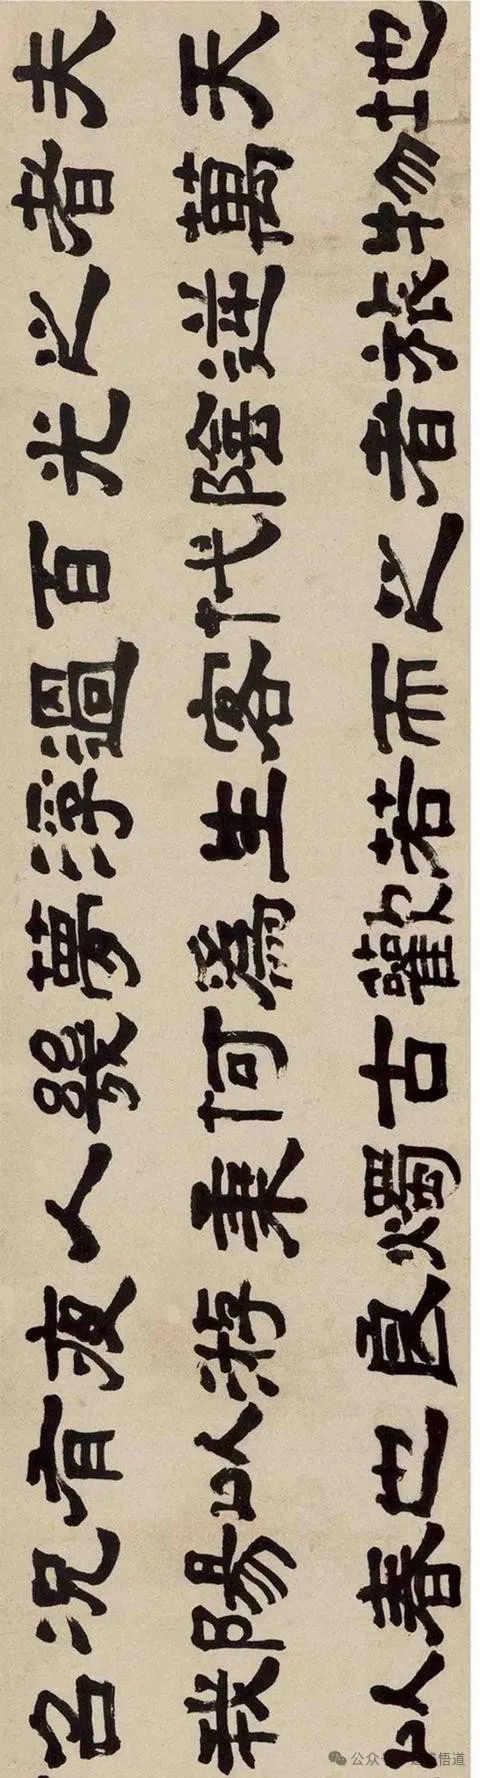 夫天地
者萬物
之逆旅
光陰者
百代之
過客而
浮生若
夢為歡
幾何古
人秉燭
夜游良
有以也
況陽春
召我以
公众号
悟道